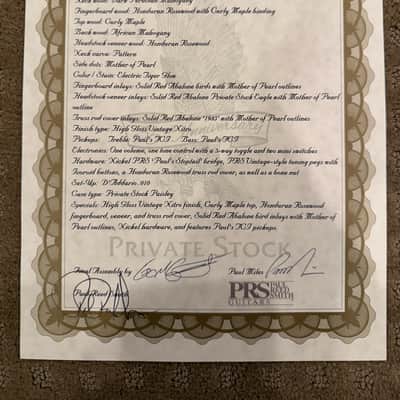 Neck wood: Dark Peruvian Mahogany
Fingerboard wood: Honduran Rosewood with Curly Maple binding
Top wood: Curly Maple
Back wood: African Mahogany
Headstock veneer wood: Honduran Rosewood
Neck carve: Pattern
Side dots: Mother of Pearl
Color / Stain: Electric Tiger Glow
Fingerboard inlays: Solid Red Abalone birds with Mother of Pearl outlines
Headstock veneer inlays: Solid Red Abalone Private Stock Eagle with Mother of Pearl
outline
Truss rod cover inlays: Solid Red Abalone "1985" with Mother of Pearl outlines
Anniversary
Finish type: High Gloss Vintage Nitro
Pickups: Treble: Paul's
Bass: Paul's
Electronics: One volume, one tone control with a 3-way toggle and two mini switches
Hardware: Nickel PRS 'Paul's Stoptail' bridge, PRS Vintage-style tuning pegs with
buttons, a Honduran Rosewood truss rod cover, as well as a bone nut
Set-Up: D'Addario .010
Case type: Private Stock Paisley
Specials: High Gloss Vintage Nitro finish, Curly Maple top, Honduran Rosewood
fingerboard, veneer, and truss rod cover, Solid Red Abalone bird inlays with Mother of
Pearl outlines, Nickel hardware, and features Paul's pickups.
PRIVATE STOCK
Final Assembly by
Paul Miles
Paul Reed Smith
PRS PAUL
REED
SMITH
GUITARS